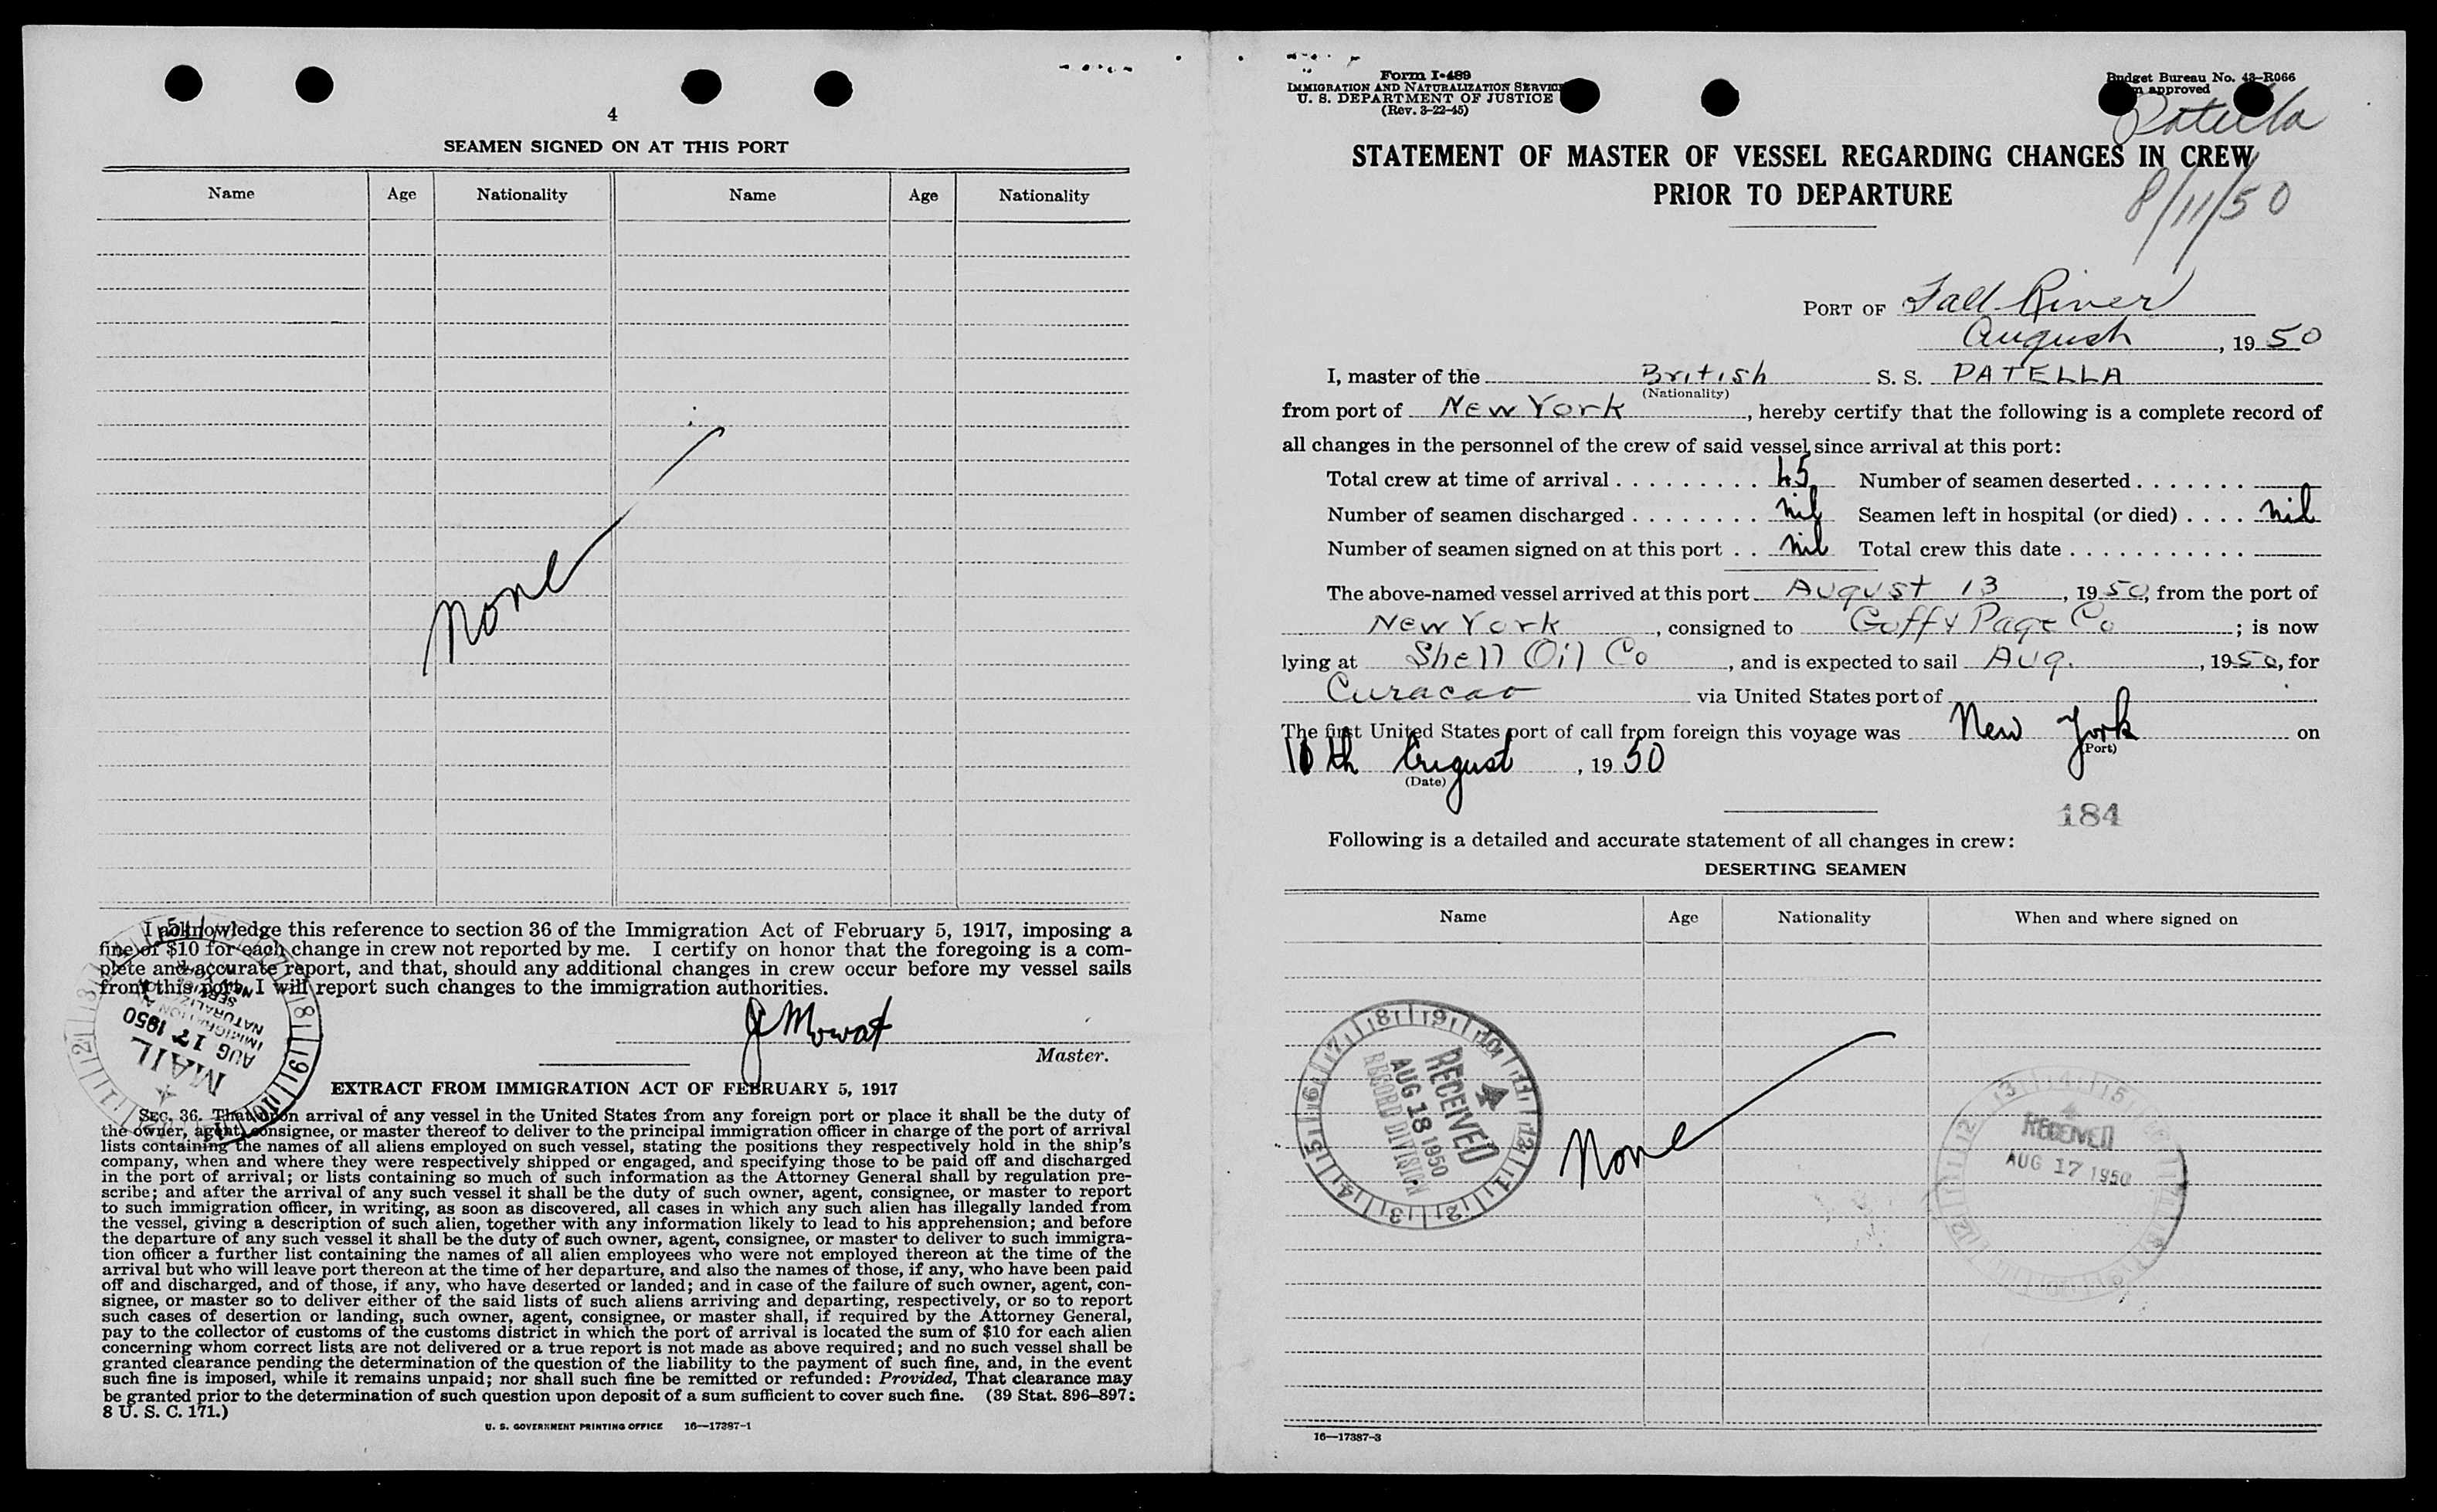 4
SEAMEN SIGNED ON AT THIS PORT
Name Age Nationality Name Age Nationality
None
I acknowledge this reference to section 36 of the Immigration Act of February 5, 1917, imposing a
fine of $10 for each change in crew not reported by me. I certify on honor that the foregoing is a com-
plete and accurate report, and that, should any additional changes in crew occur before my vessel sails
from this port, I will report such changes to the immigration authorities.
MAIL
AUG 17 1950
IMMIGRATION AND
NATURALIZATION
SERVICE
J Mowat
Master.
EXTRACT FROM IMMIGRATION ACT OF FEBRUARY 5, 1917
SEC. 36. That upon arrival of any vessel in the United States from any foreign port or place it shall be the duty of
the owner, agent, consignee, or master thereof to deliver to the principal immigration officer in charge of the port of arrival
lists containing the names of all aliens employed on such vessel, stating the positions they respectively hold in the ship's
company, when and where they were respectively shipped or engaged, and specifying those to be paid off and discharged
in the port of arrival; or lists containing so much of such information as the Attorney General shall by regulation pre-
scribe; and after the arrival of any such vessel it shall be the duty of such owner, agent, consignee, or master to report
to such immigration officer, in writing, as soon as discovered, all cases in which any such alien has illegally landed from
the vessel, giving a description of such alien, together with any information likely to lead to his apprehension; and before
the departure of any such vessel it shall be the duty of such owner, agent, consignee, or master to deliver to such immigra-
tion officer a further list containing the names of all alien employees who were not employed thereon at the time of the
arrival but who will leave port thereon at the time of her departure, and also the names of those, if any, who have been paid
off and discharged, and of those, if any, who have deserted or landed; and in case of the failure of such owner, agent, con-
signee, or master so to deliver either of the said lists of such aliens arriving and departing, respectively, or so to report
such cases of desertion or landing, such owner, agent, consignee, or master shall, if required by the Attorney General,
pay to the collector of customs of the customs district in which the port of arrival is located the sum of $10 for each alien
concerning whom correct lists are not delivered or a true report is not made as above required; and no such vessel shall be
granted clearance pending the determination of the question of the liability to the payment of such fine, and, in the event
such fine is imposed, while it remains unpaid; nor shall such fine be remitted or refunded: Provided, That clearance may
be granted prior to the determination of such question upon deposit of a sum sufficient to cover such fine. (39 Stat. 896–897;
8 U. S. C. 171.)
U. S. GOVERNMENT PRINTING OFFICE 16—17387-1
Form I-489
IMMIGRATION AND NATURALIZATION SERVICE
U. S. DEPARTMENT OF JUSTICE
(Rev. 3-22-45)
Budget Bureau No. 43-R066
approved
Patella
STATEMENT OF MASTER OF VESSEL REGARDING CHANGES IN CREW
PRIOR TO DEPARTURE
8/11/50
PORT OF Fall River
August, 1950
I, master of the British S. S. PATELLA
(Nationality)
from port of New York, hereby certify that the following is a complete record of
all changes in the personnel of the crew of said vessel since arrival at this port:
Total crew at time of arrival 45 Number of seamen deserted
Number of seamen discharged nil Seamen left in hospital (or died) nil
Number of seamen signed on at this port nil Total crew this date
The above-named vessel arrived at this port August 13, 1950, from the port of
New York, consigned to Goffy Page Co; is now
lying at Shell Oil Co, and is expected to sail Aug., 1950, for
Curacao via United States port of
The first United States port of call from foreign this voyage was New York on
(Port)
10th August, 1950
(Date)
184
Following is a detailed and accurate statement of all changes in crew:
DESERTING SEAMEN
Name Age Nationality When and where signed on
RECEIVED
AUG 18 1950
RECORD DIVISION
None
RECEIVED
AUG 17 1950
16—17387-3